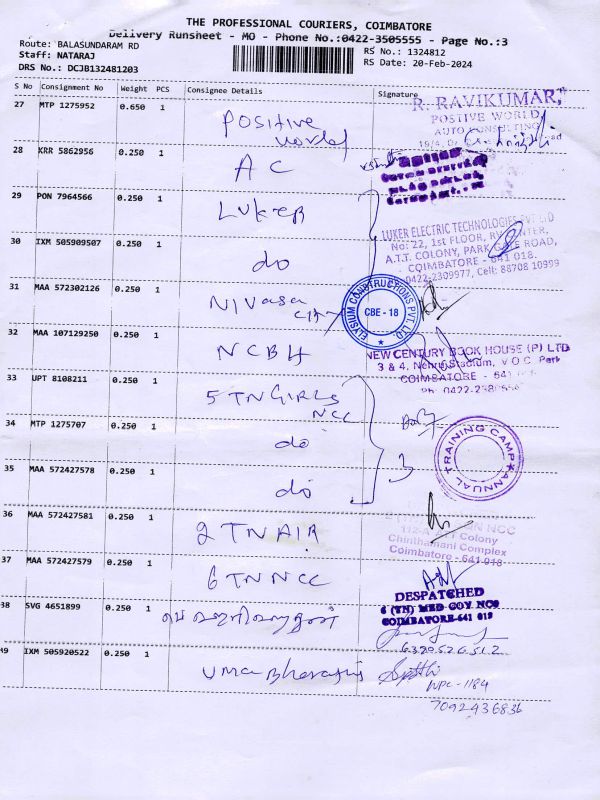 THE PROFESSIONAL COURIERS, COIMBATORE
Delivery Runsheet - MO - Phone No.:0422-3505555 - Page No.:3
Route: BALASUNDARAM RD
Staff: NATARAJ
DRS No.: DCJB132481203
RS No.: 1324812
RS Date: 20-Feb-2024
S No Consignment No Weight PCS Consignee Details Signature
27 MTP 1275952 0.650 1 Positive World
R. RAVIKUMAR,
POSTIVE WORLD
AUTO CONSULTING
28 KRR 5862956 0.250 1 A C
29 PON 7964566 0.250 1 LUKER
LUKER ELECTRIC TECHNOLOGIES PVT LTD
No: 22, 1st FLOOR,
A.T.T. COLONY, PARK GATE ROAD,
COIMBATORE - 641 018.
0422-2309977, Cell: 88708 10999
30 IXM 505909507 0.250 1 do
31 MAA 572302126 0.250 1 Nivasa
ELYSIUM CONSTRUCTIONS PVT. LTD.
CBE - 18
32 MAA 107129250 0.250 1 NCBH
NEW CENTURY BOOK HOUSE (P) LTD
3 & 4, Nehru Stadium, V.O.C. Park
COIMBATORE - 641
33 UPT 8108211 0.250 1 5 TN GIRLS
NCC
34 MTP 1275707 0.250 1 do
3
ANNUAL TRAINING CAMP
35 MAA 572427578 0.250 1 do
36 MAA 572427581 0.250 1 2 TN AIR
NCC
112-A ATT Colony
Chinthamani Complex
Coimbatore - 641 018
37 MAA 572427579 0.250 1 6 TN NCC
DESPATCHED
6 (TN) MED COY NCC
COIMBATORE-641 018
38 SVG 4651899 0.250 1
6379526512
49 IXM 505920522 0.250 1 Uma
WPC - 1184
7092436836